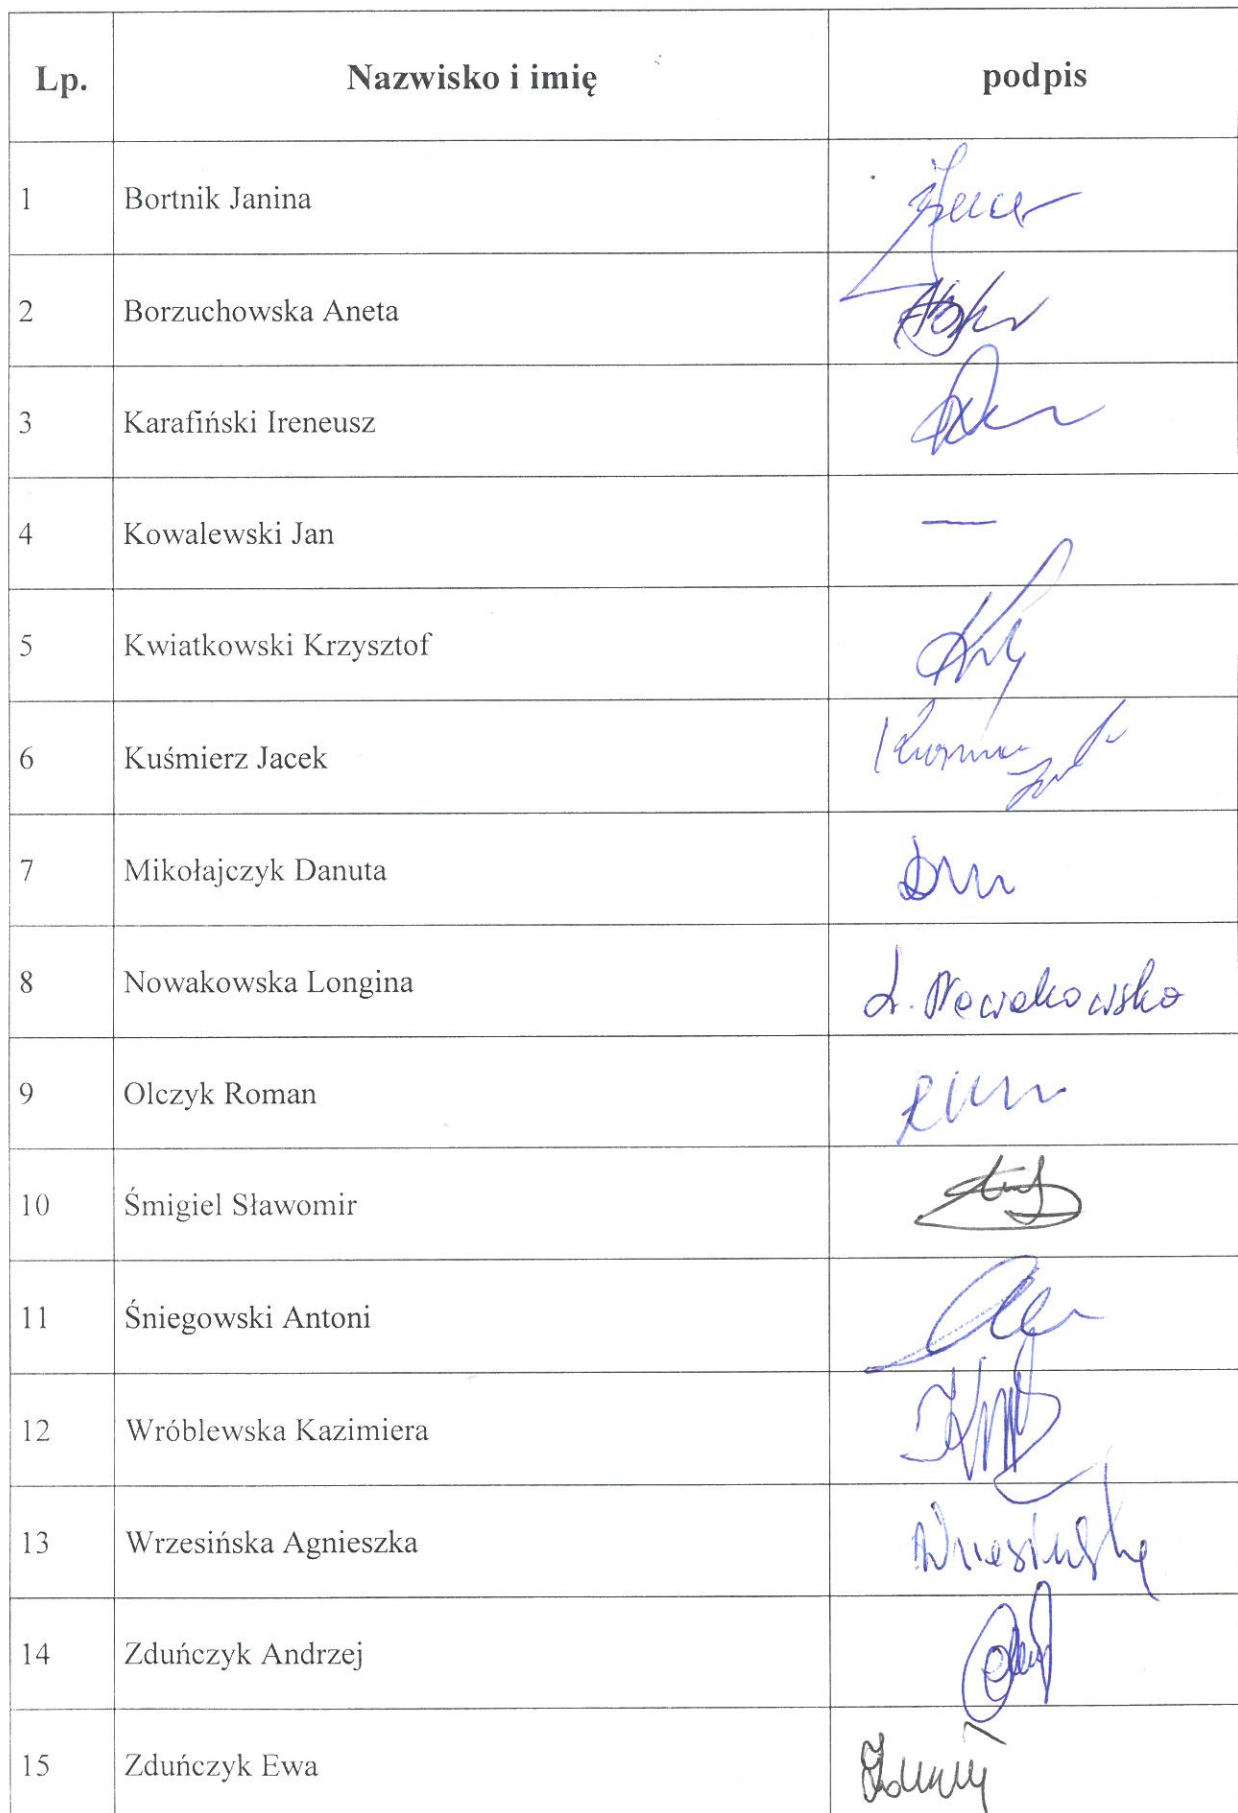 Lp. Nazwisko i imię podpis
1 Bortnik Janina
2 Borzuchowska Aneta
3 Karafiński Ireneusz
4 Kowalewski Jan —
5 Kwiatkowski Krzysztof
6 Kuśmierz Jacek
7 Mikołajczyk Danuta
8 Nowakowska Longina L. Nowakowska
9 Olczyk Roman
10 Śmigiel Sławomir
11 Śniegowski Antoni
12 Wróblewska Kazimiera
13 Wrzesińska Agnieszka Wrzesińska
14 Zduńczyk Andrzej
15 Zduńczyk Ewa